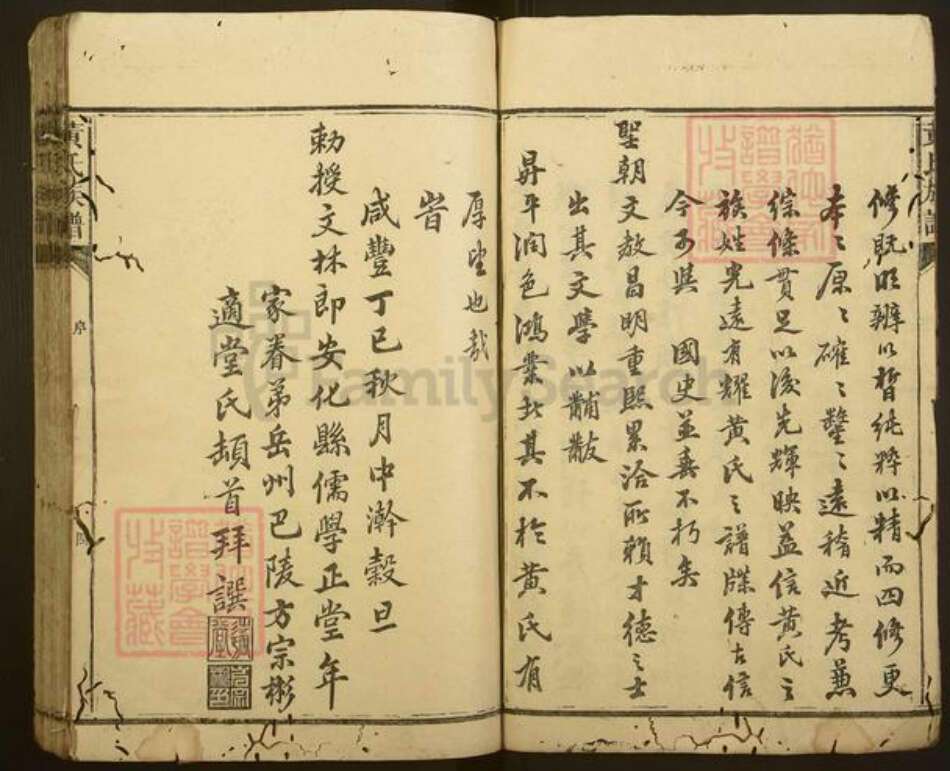 修既明辨以晳純粹以精而四修更
本之原之確之鑿之遠稽近考兼
綜條貫足以後先輝映益信黃氏之
族姓光遠有耀黃氏之譜牒傳古信
今可與 國史並垂不朽矣
聖朝文教昌明重熙累洽所賴才德之士
出其文學以黼黻
昇平潤色鴻業此其不於黃氏有
厚望也哉
旹
咸豐丁巳秋月中澣穀旦
勅授文林郎安化縣儒學正堂年
家眷弟岳州巴陵方宗彬
適堂氏頓首拜譔
黃氏族譜
序
黃氏族譜
FamilySearch